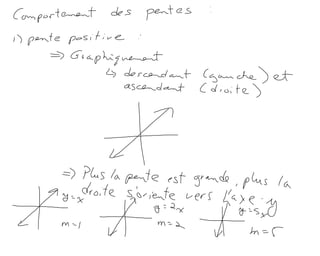 Comportement des pentes :
1) pente positive :
⇒ Graphiquement
↳ descendant (gauche) et
ascendant (droite)
⇒ Plus la pente est grande, plus la
droite s'oriente vers l'axe y
y=x
y=2x
y=5x
m=1
m=2
m=5